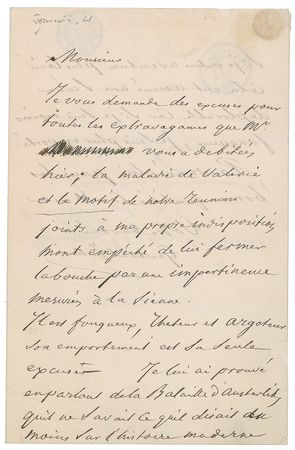 Monsieur
Je vous demande des excuses pour
toutes les extravagances que Mr
vous a debitées
hier; la maladie de Valérie
et le motif de notre reunion
joints à ma propre indisposition
mont empéché de lui fermer
la bouche par une impertinence
mesurée à la sienne.
Il est fougueux rheteur et argoteur
son emportement est sa seule
excuse Je lui ai prouvé
en parlant de la Bataille d'Austerlitz,
qu'il ne savait ce qu'il disait du
moins sur l'histoire moderne